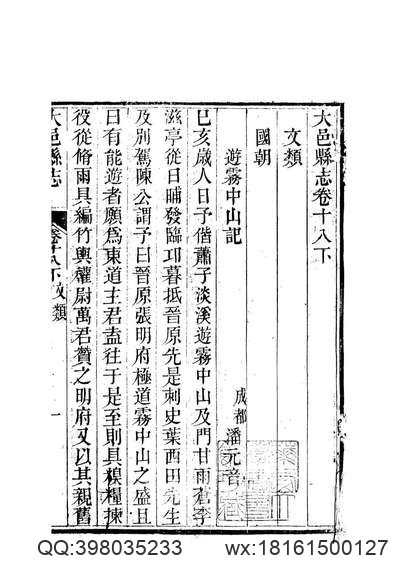 大邑縣志卷十八下
文類
國朝
遊霧中山記
成都潘元音
巳亥歲人日予偕蕭子淡溪遊霧中山及門甘雨蒼李
滋亭從日晡發臨邛暮抵晉原先是刺史葉西田先生
及別駕陳公謂予曰晉原張明府極道霧中山之盛且
曰有能遊者願為東道主君盍往于是至則具糗糧揀
役從脩雨具編竹輿權尉萬君贊之明府又以其親舊
大邑縣志
卷十八下文類
一
QQ:398035233
wx:18161500127